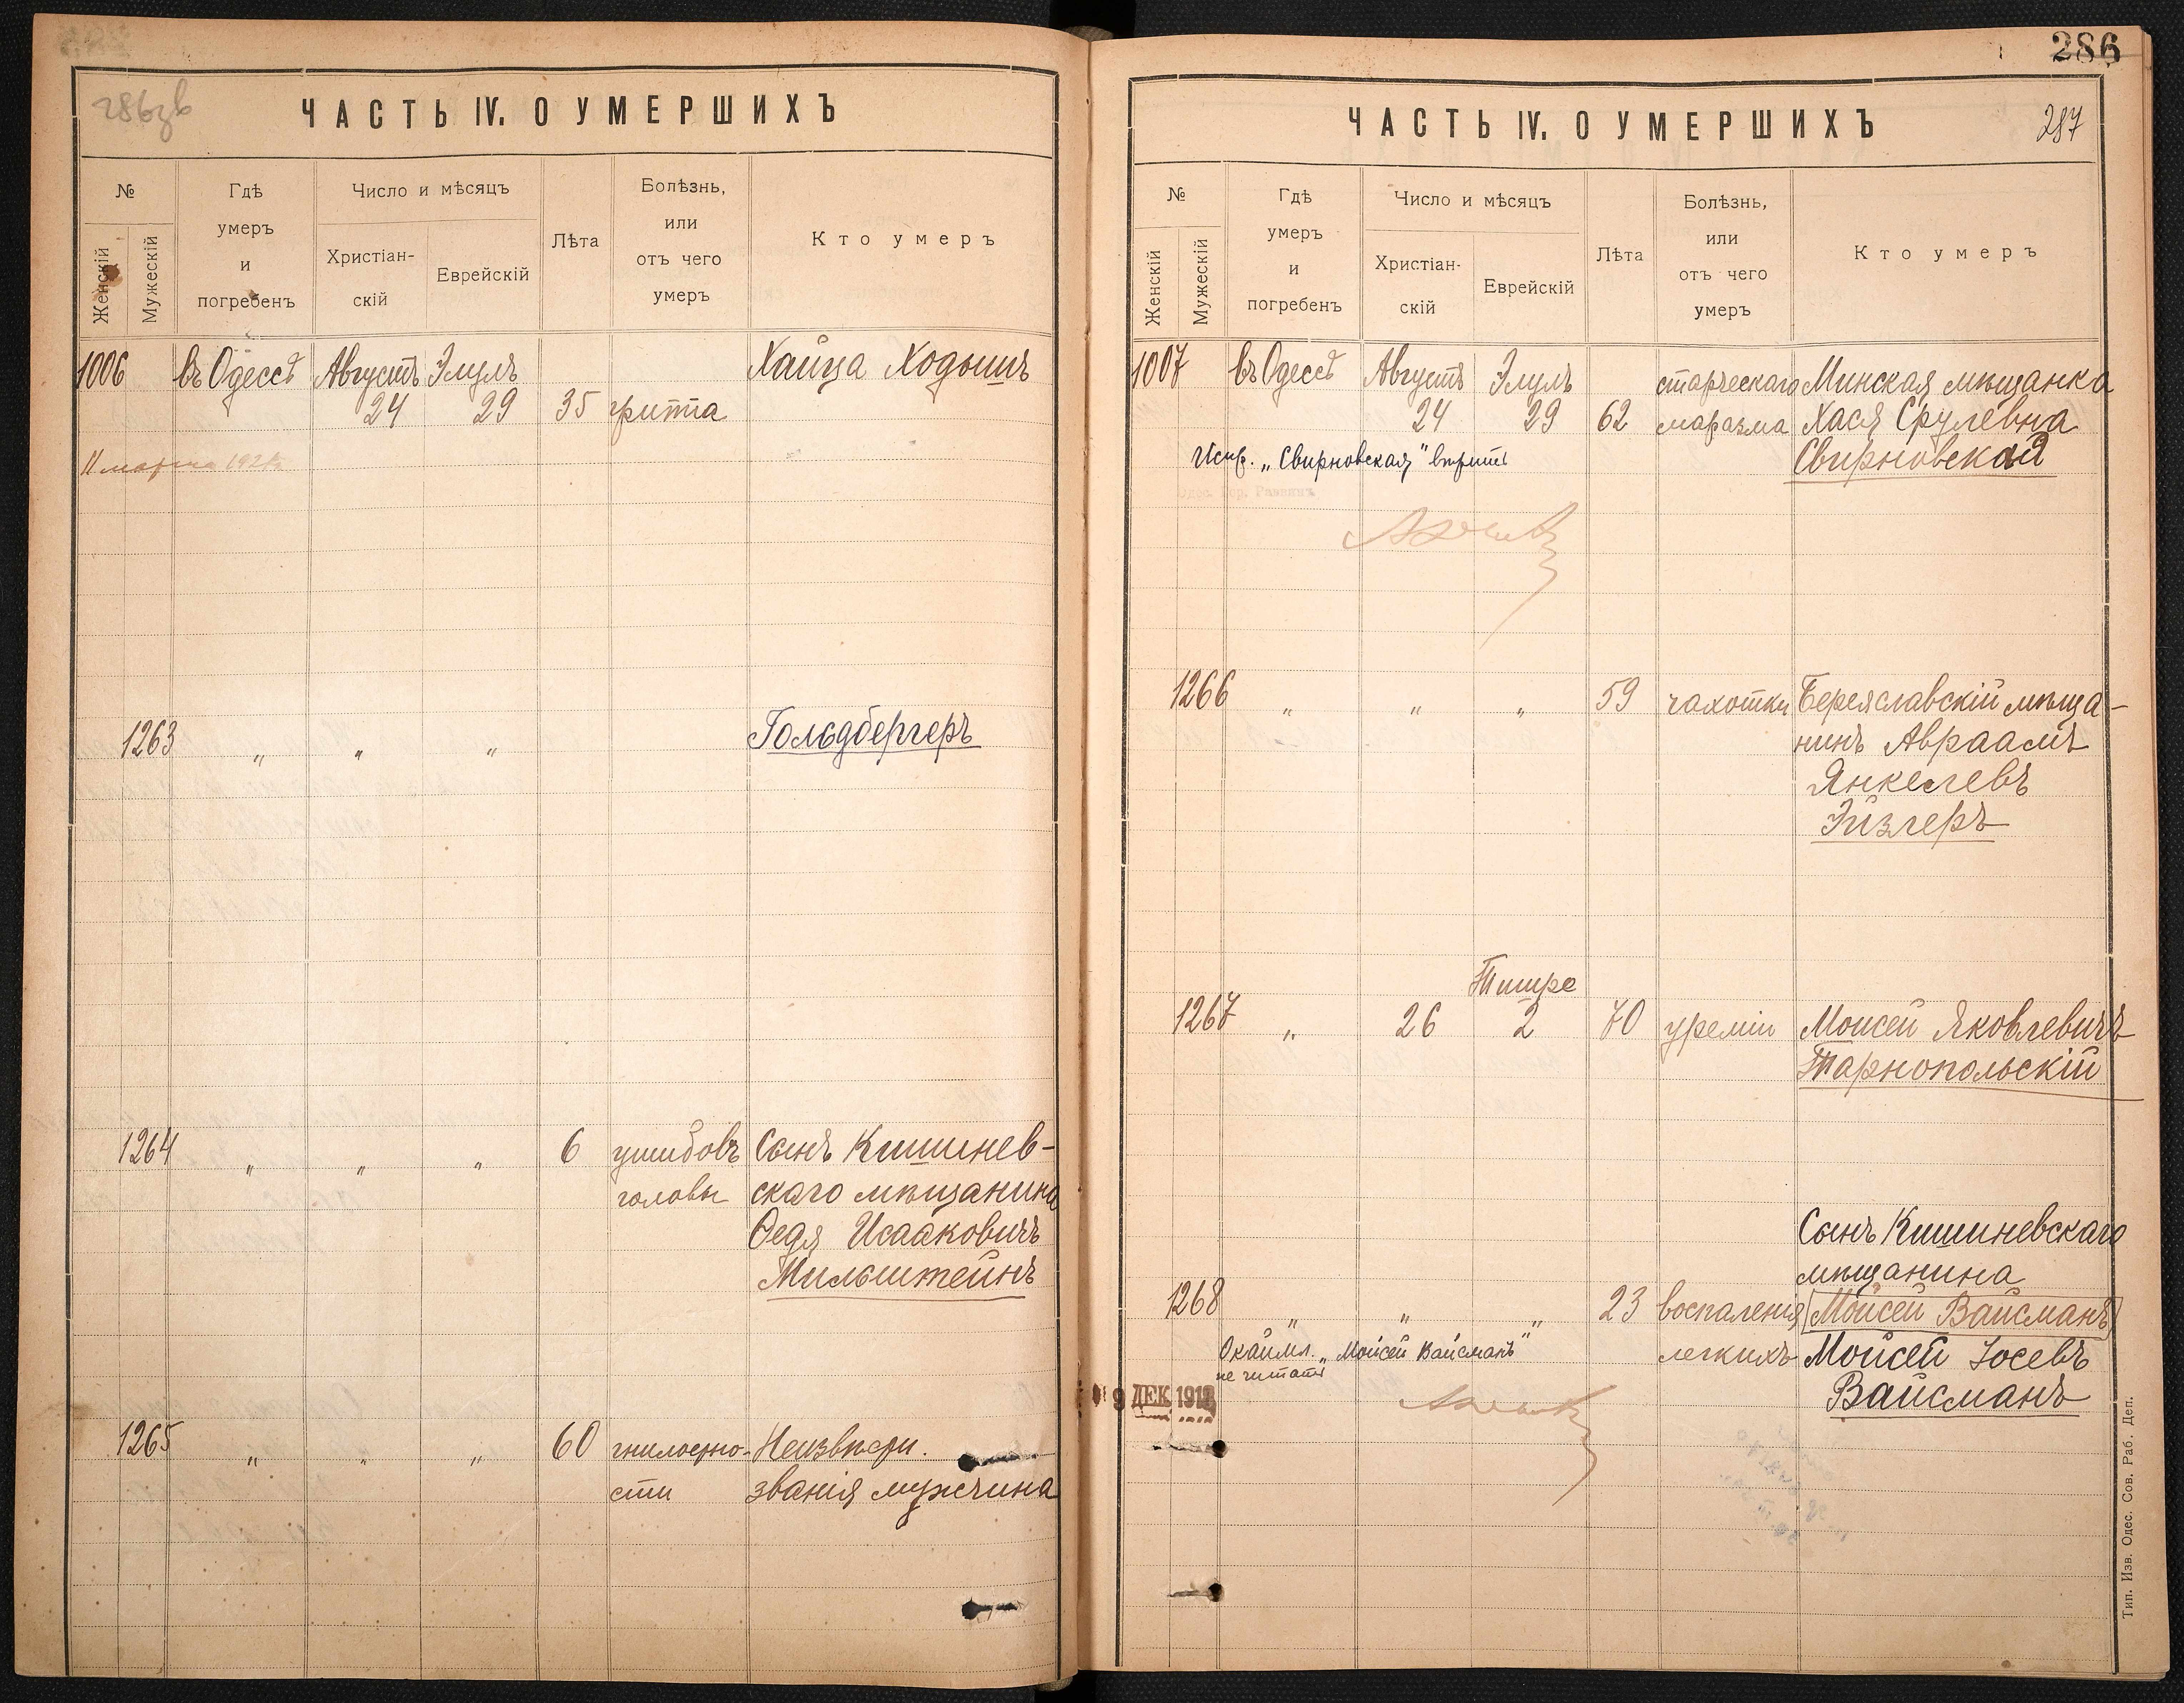 286зв
ЧАСТЬ IV. О УМЕРШИХЪ
№
Женскій
Мужескій
Гдѣ
умеръ
и
погребенъ
Число и мѣсяцъ
Христіан-
скій
Еврейскій
Лѣта
Болѣзнь,
или
отъ чего
умеръ
Кто умеръ
1006 въ Одессѣ Августъ Элулъ Хаица Ходышъ
24 29 35 гриппа
11 марта
1263 „ „ „ Гольдбергеръ
1264 „ „ „ 6 ушибовъ Сынъ Кишинев-
головы скаго мѣщанина
Ѳедя Исааковичъ
Мильштейнъ
1265 „ „ „ 60 гнилокро- Неизвѣстн.
сти званія мужчина
286
287
ЧАСТЬ IV. О УМЕРШИХЪ
№
Женскій
Мужескій
Гдѣ
умеръ
и
погребенъ
Число и мѣсяцъ
Христіан-
скій
Еврейскій
Лѣта
Болѣзнь,
или
отъ чего
умеръ
Кто умеръ
1007 въ Одессѣ Августъ Элулъ старческаго Минская мѣщанка
24 29 62 маразма Хася Срулевна
Испр. „Свирновская" вѣрить Свирновская
Одес. Гор. Раввинъ
1266 „ „ „ 59 чахотки Береславскій мѣща-
нинъ Авраамъ
Янкелевъ
Эйзлеръ
Тишре
1267 „ 26 2 70 уреміи Моисей Яковлевичъ
Тарнопольскій
Сынъ Кишиневскаго
мѣщанина
1268 „ „ „ 23 воспаленія Мойсей Вайсманъ
Окаймл. „Мойсей Вайсманъ" легкихъ Мойсей Іосевъ
не читать Вайсманъ
9 ДЕК 191
Тип. Изв. Одес. Сов. Раб. Деп.